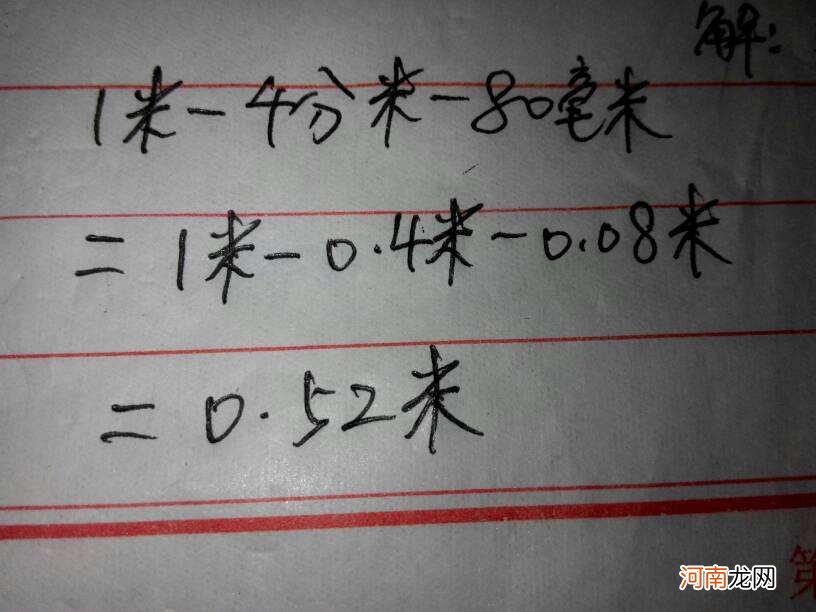 解:
1米-4分米-80毫米
=1米-0.4米-0.08米
=0.52米
第
河南龙网